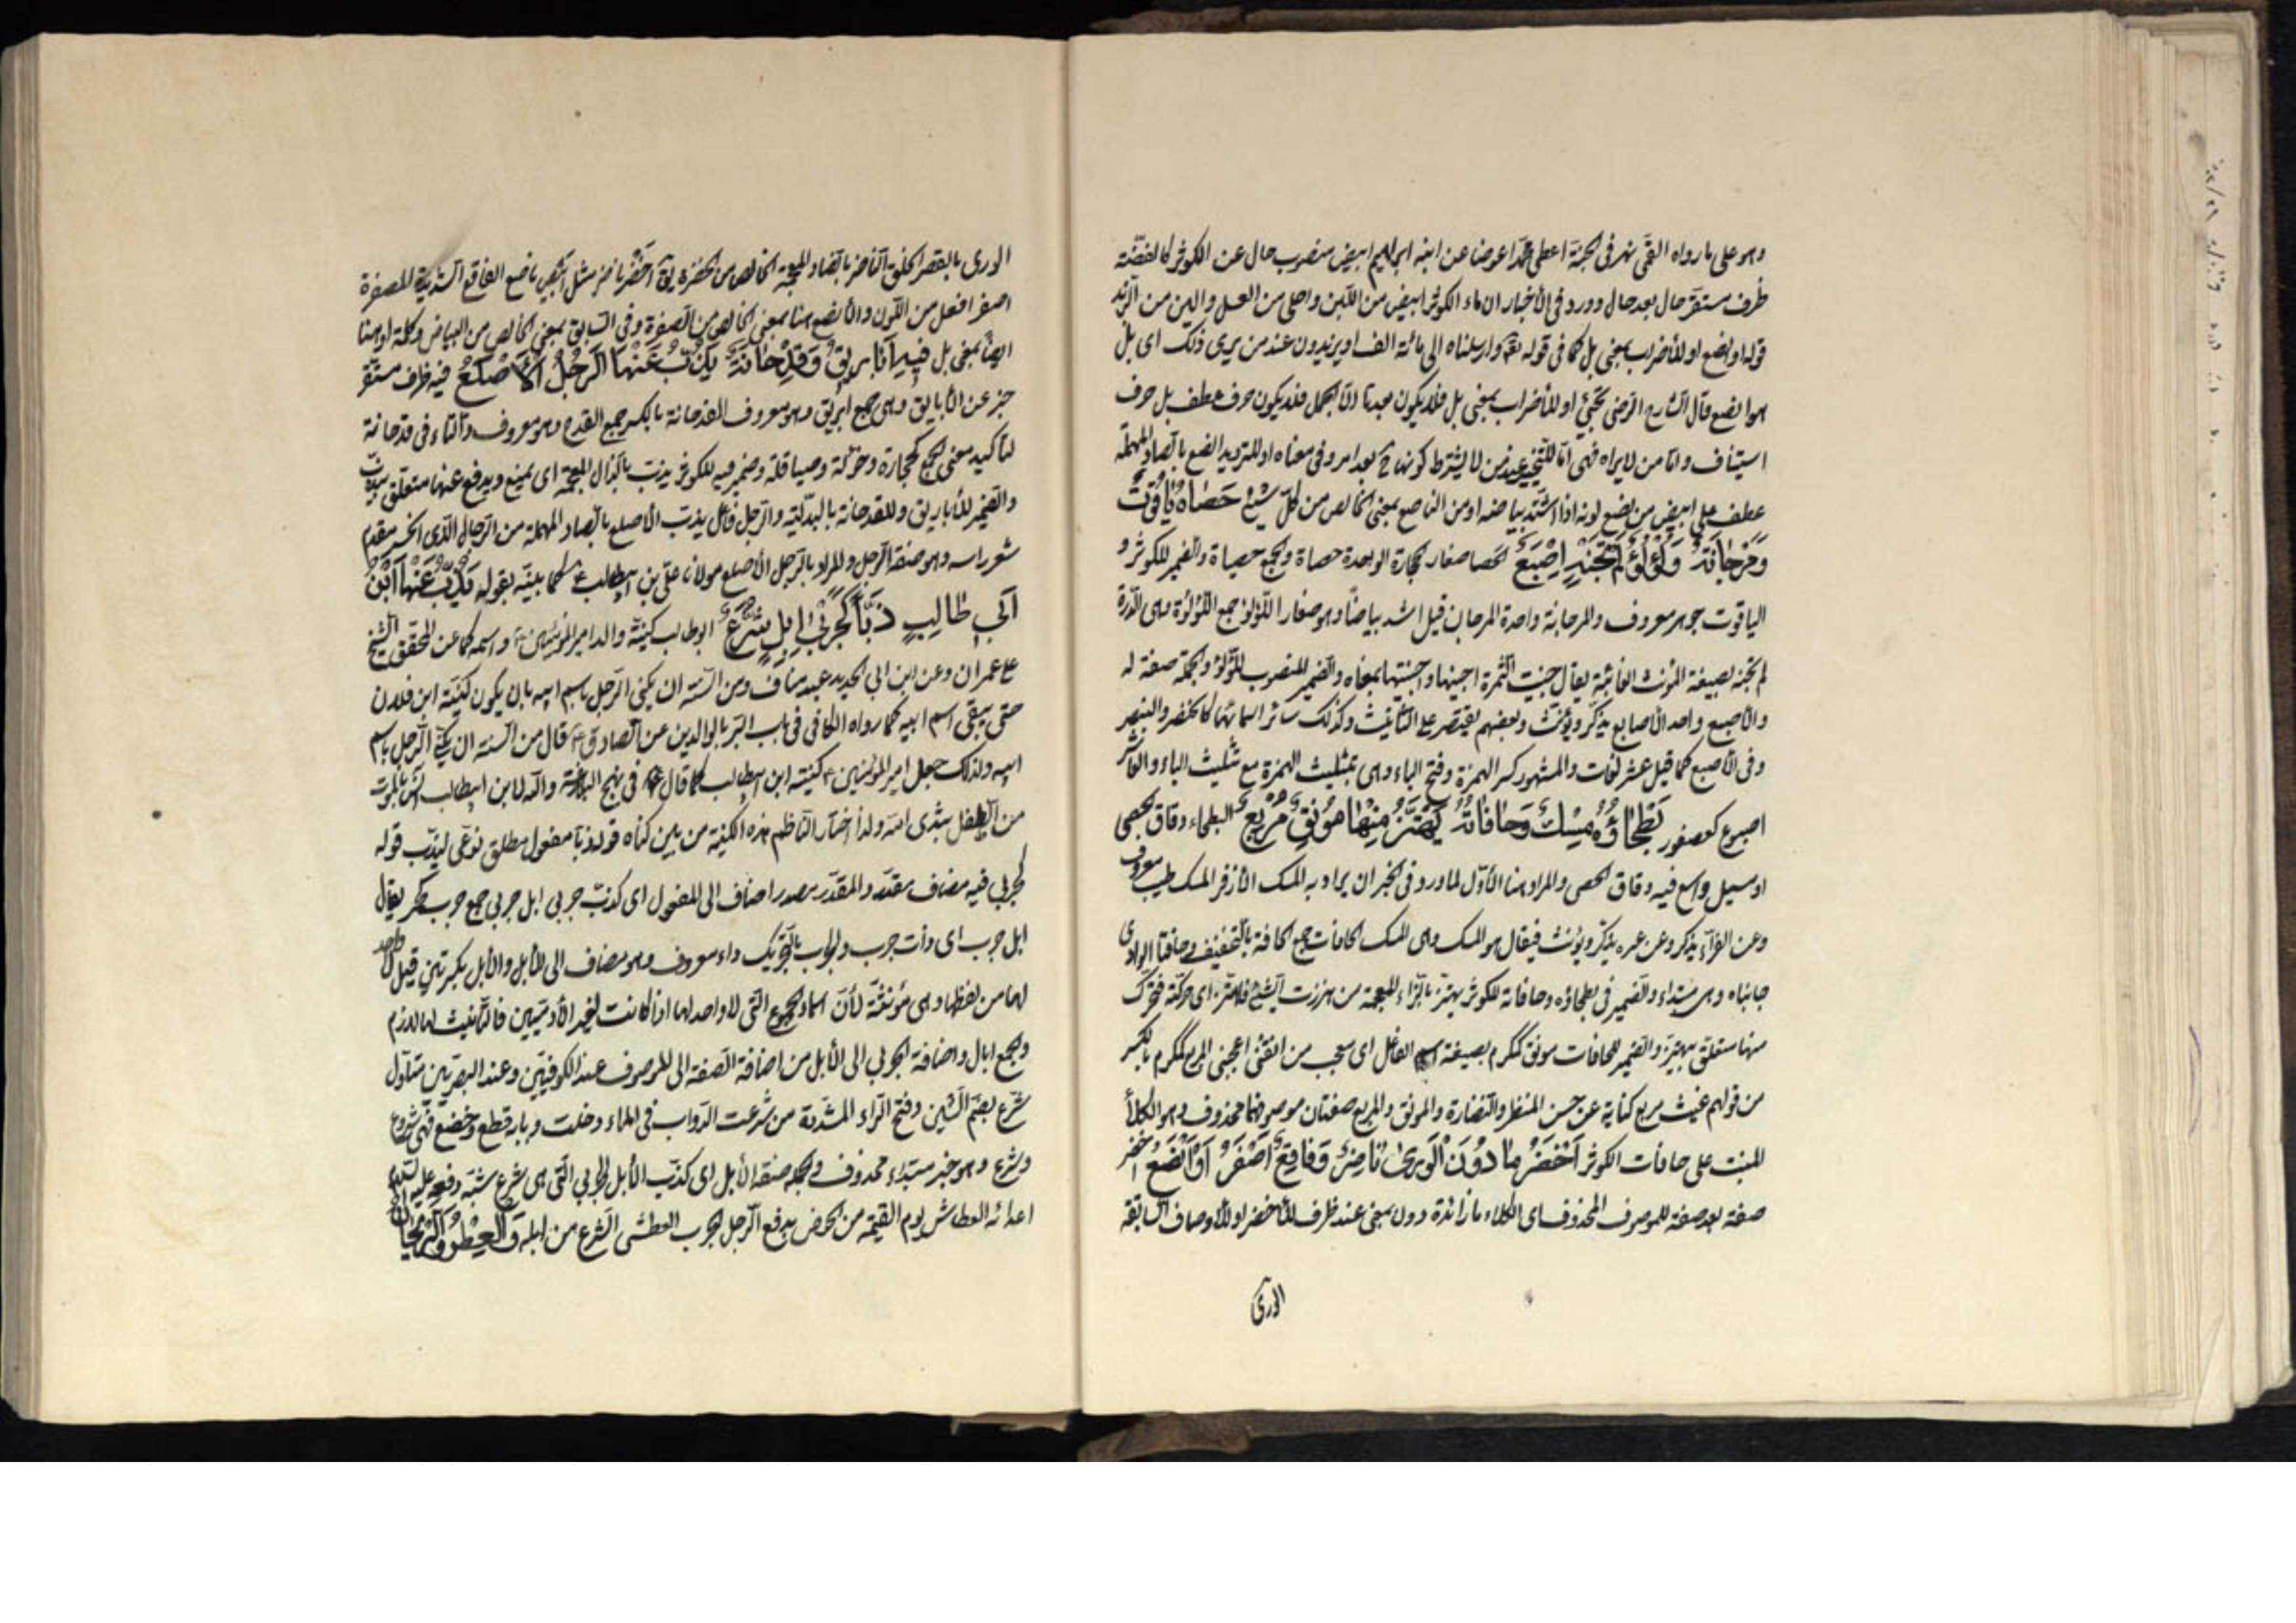 وهو على ما رواه القمّى نهر فى الجنة اعطى محمّدا عوضا عن ابنه ابراهيم ابيض منصوب حال عن الكوثر كالفضّة
ظرف مستقرّ حال بعد حال وورد فى الأخبار ان ماء الكوثر ابيض من اللّبن واحلى من العسل والين من الزّبد
قوله او انصع او للأضراب بمعنى بل كما فى قوله تعه وارسلناه الى مائة الف او يزيدون عند من يرى ذلك اى بل
هو انصع قال الشارح الرّضى تجئ او للأضراب بمعنى بل فلا يكون مجيئا الّا الجمل فلا يكون حرف عطف بل حرف
استيناف وامّا من لا يراه فهى امّا للتّخيير عند من لا يشترط كونها ح بعد امر وفى معناه او للترديد انصع بالصّاد المهملة
عطف على ابيض من نصع لونه اذا اشتدّ بياضه او من الناصع بمعنى الخالص من كلّ شئ حَصاهُ ياقُوتٌ
وَمَرْجانَةٌ وَلُؤْلُؤٌ لَمْ تَجْنِهِ اِصْبَعُ الحصا صغار الحجارة الواحدة حصاة والجمع حصياة والضمير للكوثر و
الياقوت جوهر معروف والمرجانة واحدة المرجان قيل اشد بياضاً وهو صغار اللّؤلؤ جمع اللّؤلؤة وهى الدّرة
لم تجنه بصيغة المؤنث الغائبة يقال جنيت الثّمرة اجنيها واجتنيتها بمعناه والضّمير المنصوب للّؤلؤ والجملة صفة له
والأصبع واحد الأصابع يذكّر ويؤنّث وبعضهم يقتصر على التّأنيث وكذلك سائر اسمائها كالخنصر والبنصر
وفى الأصبع كما قيل عشر لغات والمشهور كسر الهمزة وفتح الباء وهى بتثليث الهمزة مع تثليث الباء والعاشر
اصبوع كعصفور بَطْحاؤُهُ مِسْكٌ وَحافاتُهُ يَهْتَزُّ مِنْها مُونِقٌ مُرْبِعٌ البطحاء دقاق الحصى
او سيل واسع فيه دقاق الحصى والمراد هنا الأوّل لما ورد فى الخبر ان يراد به المسك الأذفر المسك طيب معروف
وعن الفرّاء يذكر وعن غيره يذكّر ويؤنث فيقال هو المسك وهى المسك الحافات جمع الحافة بالتّخفيف وحافتا الوادى
جانباه وهى مبتداء والضّمير فى بطحاؤه وحافاته للكوثر يهتز بالزّاء المعجمة من هززت الشّئ فاهتزّ اى حركته فتحرّك
منها متعلّق بيهتزّ والضّمير للحافات مونق كمكرم بصيغة اسم الفاعل اى معجب من انقنى اعجبنى المربع كمكرم بالكسر
من قولهم غيث مربع كناية عن حسن المنظر والنّضارة والمونق والمربع صفتان موصوفهما محذوف وهو الكلأ
المنبت على حافات الكوثر اَخْضَرُ ما دُونَ الْوَرى ناضِرٌ وَفاقِعٌ اَصْفَرُ اَوْ اَنْصَعُ اخضر
صفة بعد صفة للموصوف المحذوف اى الكلاء ما زائدة دون بمعنى عند ظرف للأخضر او للأوصاف السّابقة
الورى
الورى بالقصر الخلق النّاضر بالضّاد المعجمة الخالص من الخضرة يق اَخْضَرُ ناضر مثل ابيض ناصع الفاقع الشّديد الصفرة
اصفر افعل من اللّون والأنصع هنا بمعنى الخالص من الصّفرة وفى السّابق بمعنى الخالص من البياض وكلمة او هنا
ايضاً بمعنى بل فِيهِ اَبارِيقٌ وَقِدْحانَةٌ يَذُبُّ عَنْهَا الرَّجُلُ الْأَصْلَعُ فيه ظرف مستقّر
خبر عن الأباريق وهى جمع ابريق وهو معروف القدحانة بالكسر جمع القدح وهو معروف والتّاء فى قدحانة
لتأكيد معنى الجمع كحجارة وخزنة وصياقلة وضمير فيه للكوثر يذبّ بالذّال المعجمة اى يمنع ويدفع عنها متعلق بيذبّ
والضّمير للأباريق وللقدحانة بالبدليّة والرّجل فاعل يذبّ الأصلع بالصّاد المهملة من الرّجال الّذى انحسر مقدم
شعر راسه وهو صفة الرّجل والمراد بالرّجل الأصلع مولانا علىّ بن ابيطالب ع كما بيّنه بقوله يَذُبُّ عَنْهَا ابْنُ
اَبِي طالِبٍ ذَبّاً كَجَرْبى اِبِلٍ شُرَّعٌ ابو طالب كنيّة والد امير المؤمنين ع واسمه كما عن المحقّق الشّيخ
على عمران وعن ابن ابى الحديد عبد مناف ومن السّنة ان يكنى الرّجل باسم ابيه بان يكون كنيته ابن فلان
حتى يبقى اسم ابيه كما رواه الكافى فى باب البّر بالوالدين عن الصّادق ع قال من السّنة ان يكنّى الرّجل باسم
ابيه ولذلك جعل امير المؤمنين ع كنيته ابن ابيطالب كما قال ع فى نهج البلاغة والله لابن ابيطالب آنس بالموت
من الطّفل بثدى امّه ولذا اختار النّاظم هذه الكنية من بين كناه قوله ذبّاً مفعول مطلق نوعى ليذبّ قوله
كجربى فيه مضاف مقدّر والمقدّر مصدر اضاف الى المفعول اى كذبّ جربى ابل جربى جمع جرب يقال
ابل جرب اى ذات جرب والجرب بالتّحريك داء معروف وهو مضاف الى الأبل والأبل بكسرتين قيل لا واحد
لها من لفظها وهى مؤنّثة لأنّ اسماء الجموع الّتى لا واحد لها اذا كانت لغير الآدميّين فالتّأنيث لها لازم
والجمع ابال واضافة الجربى الى الأبل من اضافة الصّفة الى الموصوف عند الكوفيّين وعند البصريّين متأوّل
شرّع بضمّ الشّين وفتح الرّاء المشدّدة من شرعت الدّواب فى الماء دخلت وبابه قطع وخضع فهى شروع
وشرع وهو خبر مبتداء محذوف والجملة صفة الأبل اى كذبّ الأبل الجربى الّتى هى شرّع شبّه دفعه عليه السّلام
اعدائه العطاش يوم القيمة من الحوض بدفع الرّجل الجرب العطشى الشّرع من ابله وَالْعِطْرُ وَالرَّيْحانُ